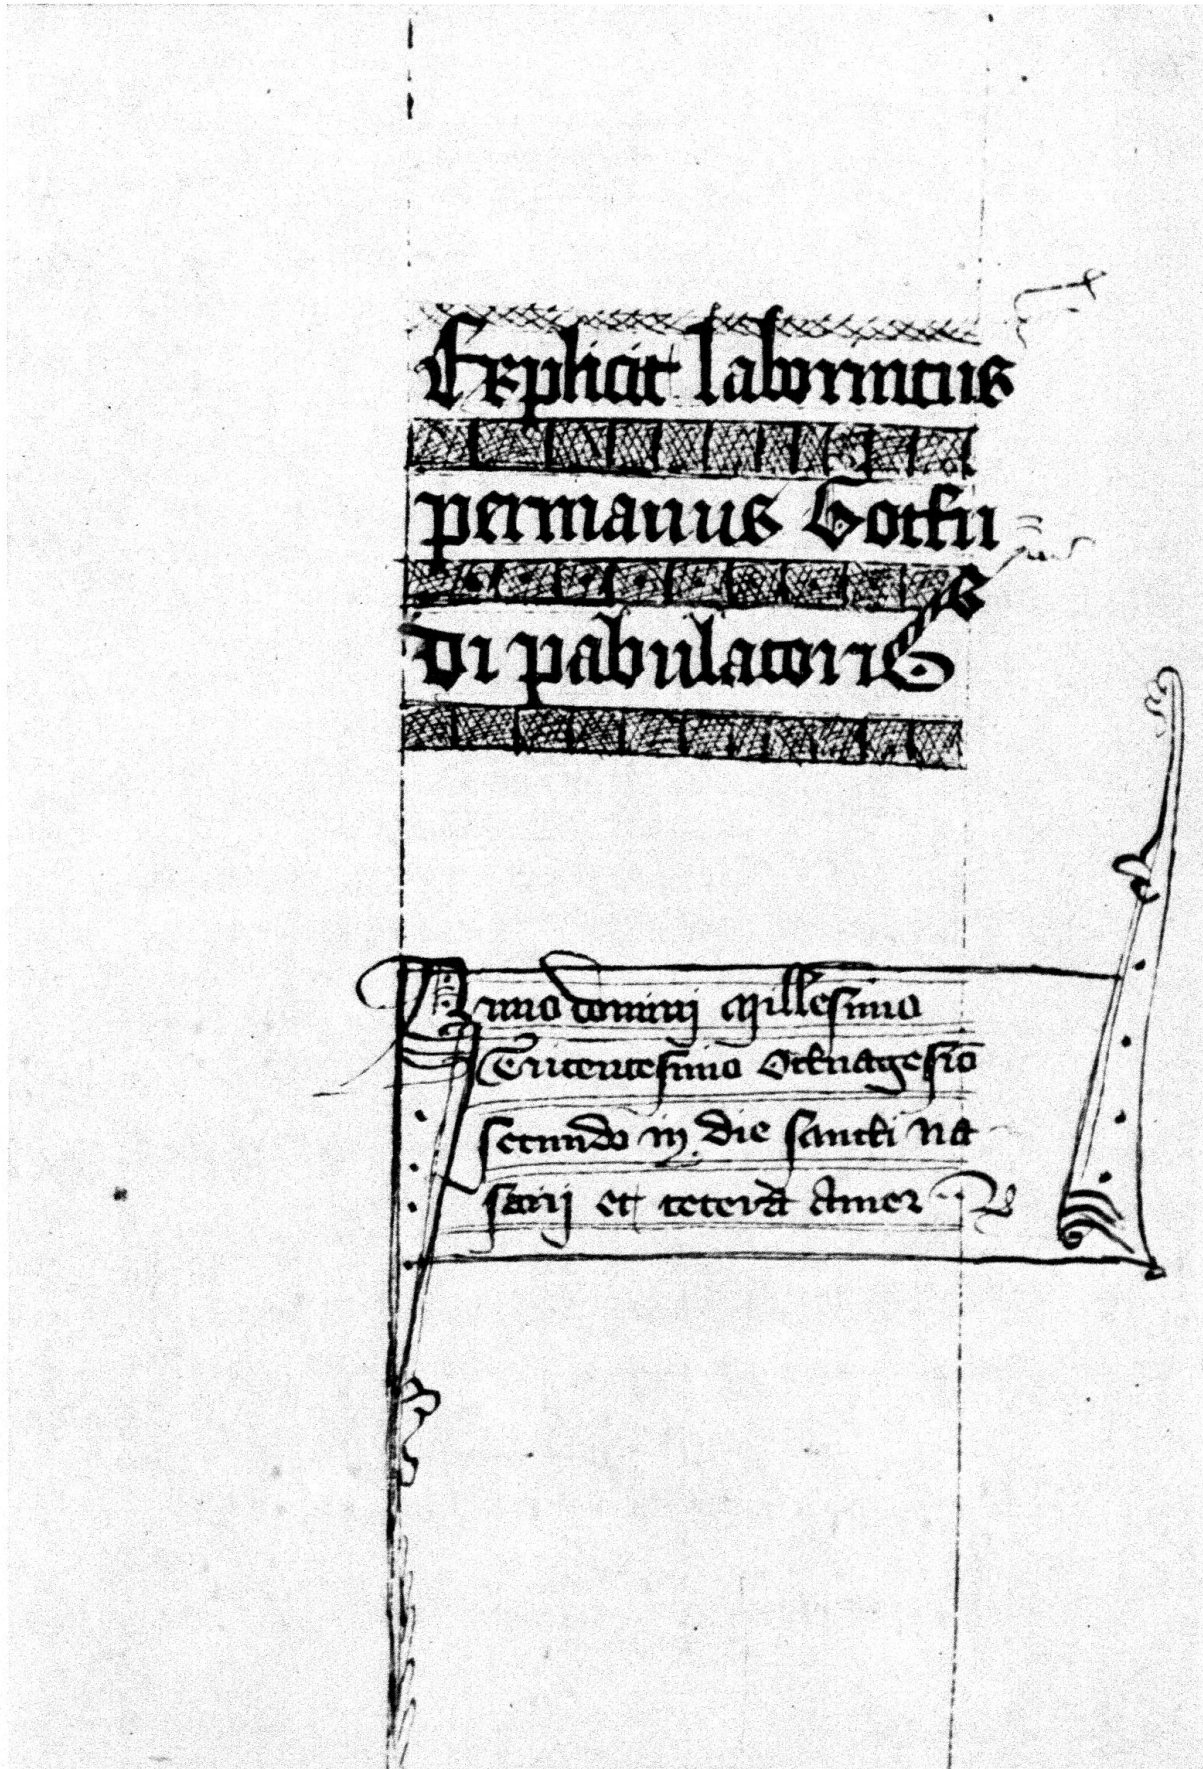 Explicit laborintus
per manus Gotfri
di pabulatoris
Anno domini Millesimo
Tricentesimo Octuagesīo
secundo in die sancti Na
sarij et cetera Amen